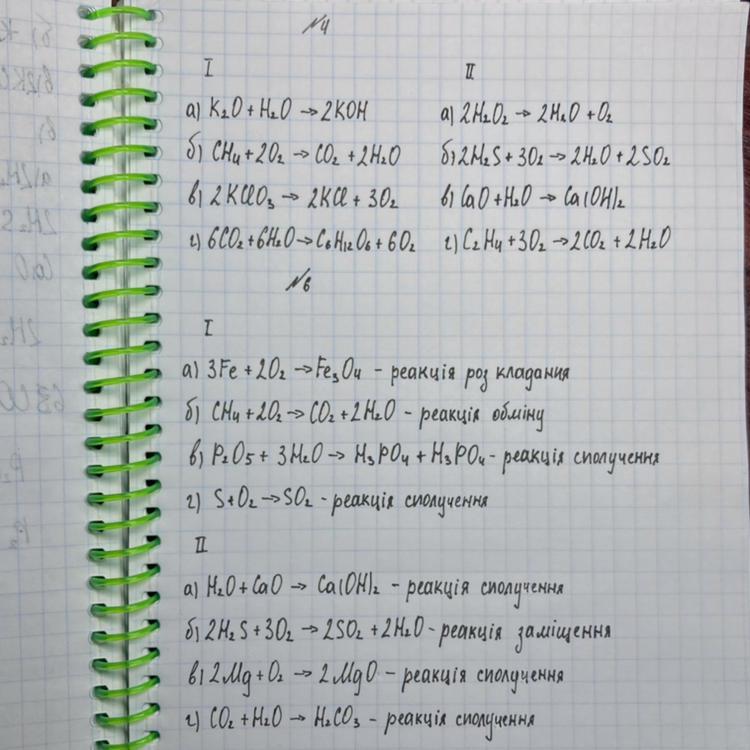 №4
I II
а) K₂O + H₂O → 2KOH а) 2H₂O₂ → 2H₂O + O₂
б) CH₄ + 2O₂ → CO₂ + 2H₂O б) 2H₂S + 3O₂ → 2H₂O + 2SO₂
в) 2KClO₃ → 2KCl + 3O₂ в) CaO + H₂O → Ca(OH)₂
г) 6CO₂ + 6H₂O → C₆H₁₂O₆ + 6O₂ г) C₂H₄ + 3O₂ → 2CO₂ + 2H₂O
№6
I
а) 3Fe + 2O₂ → Fe₃O₄ - реакція роз кладання
б) CH₄ + 2O₂ → CO₂ + 2H₂O - реакція обміну
в) P₂O₅ + 3H₂O → H₃PO₄ + H₃PO₄ - реакція сполучення
г) S + O₂ → SO₂ - реакція сполучення
II
а) H₂O + CaO → Ca(OH)₂ - реакція сполучення
б) 2H₂S + 3O₂ → 2SO₂ + 2H₂O - реакція заміщення
в) 2Mg + O₂ → 2MgO - реакція сполучення
г) CO₂ + H₂O → H₂CO₃ - реакція сполучення